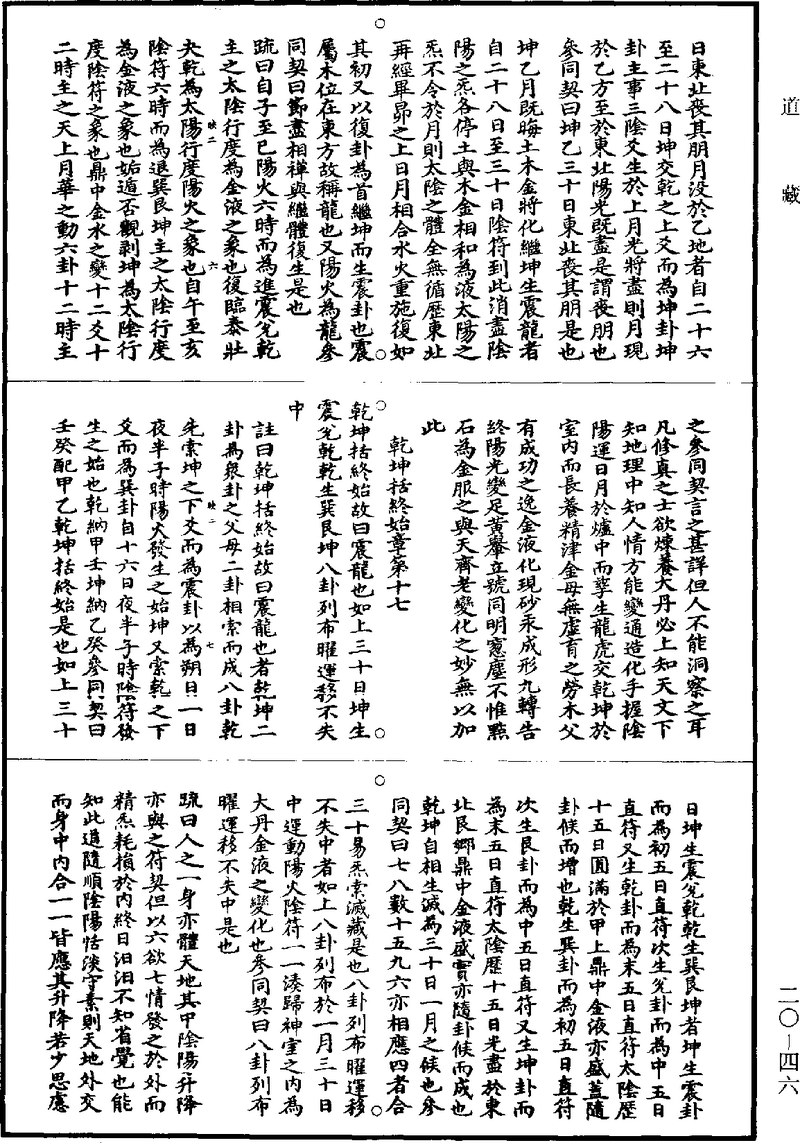 道藏
日東北喪其朋月没於乙地者自二十六
至二十八日坤交乾之上爻而為坤卦坤
卦主事三陰爻生於上月光將盡則月現
於乙方至於東北陽光既盡是謂喪朋也
參同契曰坤乙三十日東北喪其朋是也
坤乙月既晦土木金將化繼坤生震龍者
自二十八日至三十日陰符到此消盡陰
陽之炁各停土與木金相和為液太陽之
炁不令於月則太陰之體全無循歷東北
再經畢昴之上日月相合水火重施復如
其初又以復卦為首繼坤而生震卦也震
屬木位在東方故稱龍也又陽火為龍參
同契曰節盡相禪與繼體復生是也
疏曰自子至巳陽火六時而為進震兊乾
主之太陰行度為金液之象也復臨泰壯
夬乾為太陽行度陽火之象也自午至亥
映二 六
陰符六時而為退巽艮坤主之太陰行度
為金液之象也姤遁否觀剥坤為太陰行
度陰符之象也鼎中金水之變十二爻十
二時主之天上月華之動六卦十二時主
之參同契言之甚詳但人不能洞察之耳
凡修真之士欲煉養大丹必上知天文下
知地理中知人情方能變通造化手握陰
陽運日月於爐中而孳生龍虎交乾坤於
室内而長養精津金母無虛育之勞木父
有成功之逸金液化現砂汞成形九轉告
終陽光變足黄轝立號同明窻塵不惟點
石為金服之與天齊老變化之妙無以加
此
乾坤括終始章第十七
乾坤括終始故曰震龍也如上三十日坤生
震兊乾乾生巽艮坤八卦列布曜運移不失
中
註曰乾坤括終始故曰震龍也者乾坤二
卦為衆卦之父母二卦相索而成八卦乾
映二 七
先索坤之下爻而為震卦以為朔旦一日
夜半子時陽火發生之始坤又索乾之下
爻而為巽卦自十六日夜半子時陰符發
生之始也乾納甲壬坤納乙癸參同契曰
壬癸配甲乙乾坤括終始是也如上三十
日坤生震兊乾乾生巽艮坤者坤生震卦
而為初五日直符次生兊卦而為中五日
直符又生乾卦而為末五日直符太陰歷
十五日圓滿於甲上鼎中金液亦盛蓋隨
卦候而增也乾生巽卦而為初五日直符
次生艮卦而為中五日直符又生坤卦而
為末五日直符太陰歷十五日光盡於東
北艮鄉鼎中金液盛實亦隨卦候而成也
乾坤自相生滅為三十日一月之候也參
同契曰七八數十五九六亦相應四者合
三十易炁索滅藏是也八卦列布曜運移
不失中者如上八卦列布於一月三十日
中運動陽火陰符一一湊歸神室之内為
大丹金液之變化也參同契曰八卦列布
曜運移不失中是也
疏曰人之一身亦體天地其甲陰陽升降
亦與之符契但以六欲七情發之於外而
精炁耗損於内終日汨汨不知省覺也能
知此道隨順陰陽恬淡守素則天地外交
而身中内合一一皆應其升降若少思慮
二〇－四六